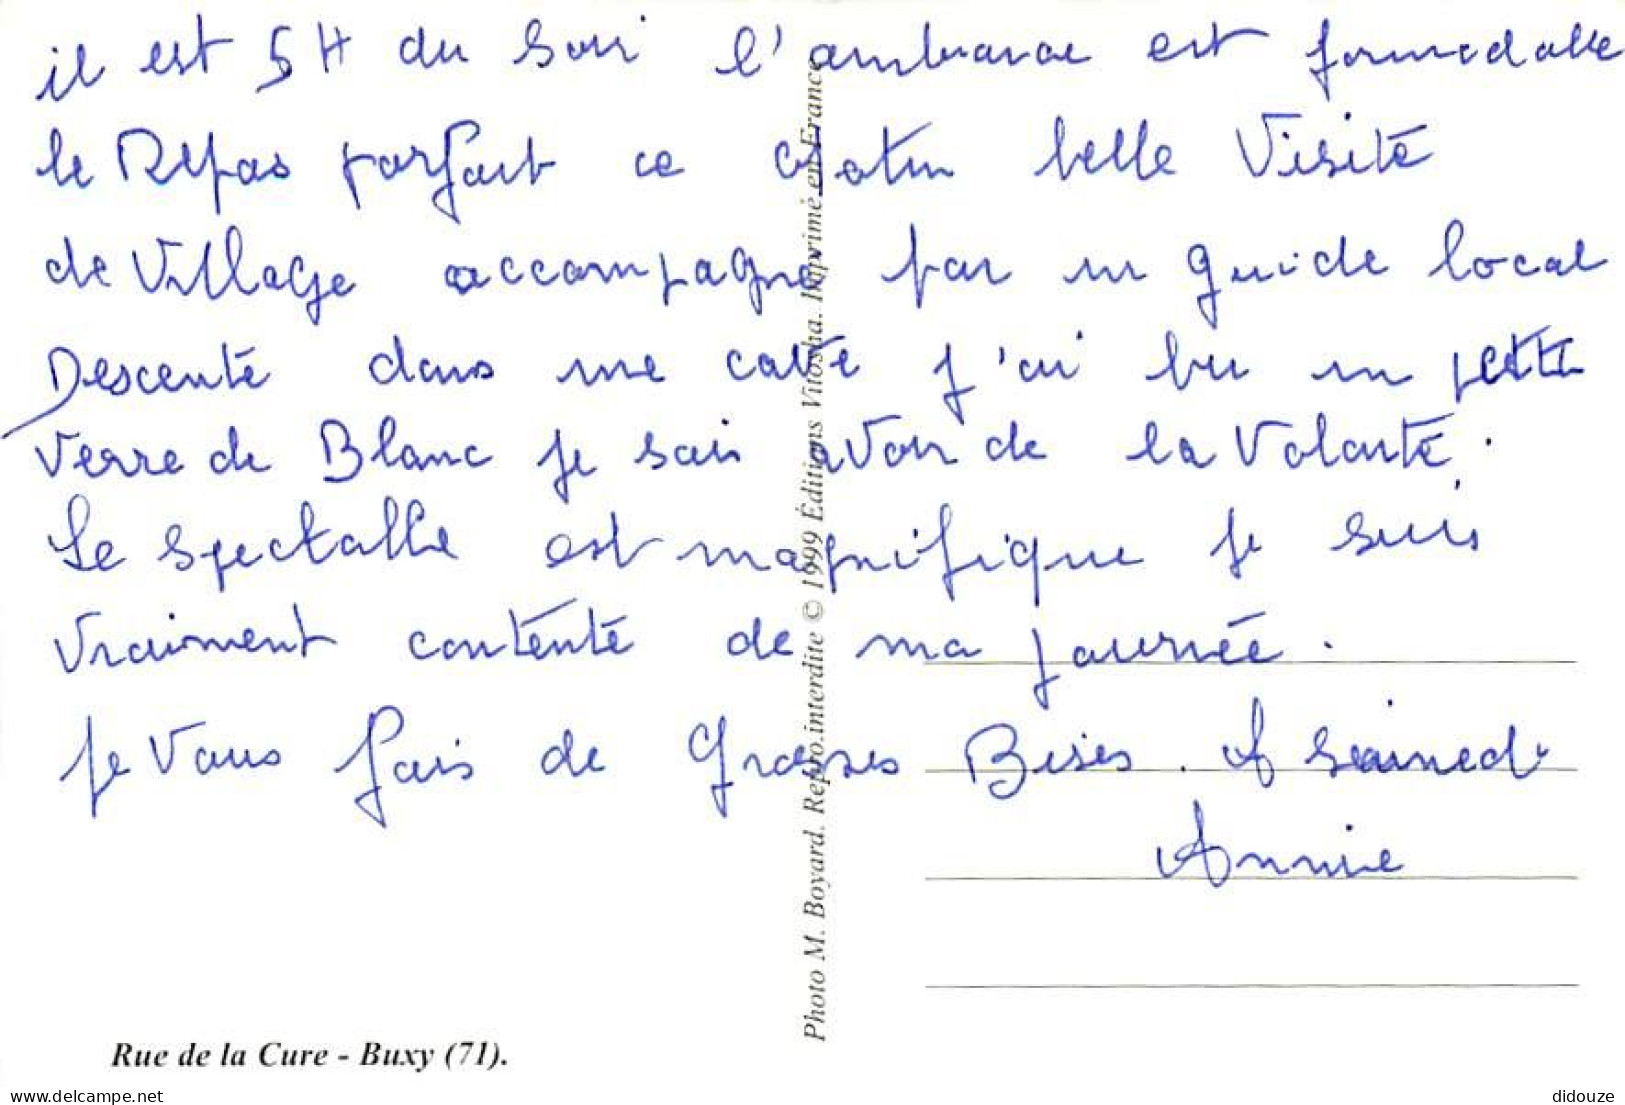 il est 5 H du soir l'ambiance est formidable
le Repas parfait ce matin belle Visite
de Village accompagné par un guide local
Descente dans une cave j'ai bu un petit
verre de Blanc je sais avoir de la Volonté.
Le spectacle est magnifique je suis
vraiment contente de ma journée.
Je vous fais de Grosses Bises. A samedi
Annie
Photo M. Boyard. Repro.interdite © 1999 Éditions Vitosha. Imprimé en France
Rue de la Cure - Buxy (71).
www.delcampe.net
didouze